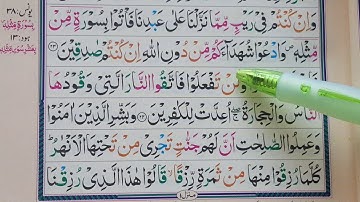 وَاِنْ كُنْتُمْ فِيْ رَيْبٍ مِّمَّا نَزَّلْنَا عَلٰى عَبْدِنَا فَاْتُوْا بِسُوْرَةٍ مِّنْ
مِّثْلِهٖ ۪ وَادْعُوْا شُهَدَآءَكُمْ مِّنْ دُوْنِ اللّٰهِ اِنْ كُنْتُمْ صٰدِقِيْنَ ﴿۲۳﴾
وَلَنْ تَفْعَلُوْا فَاتَّقُوا النَّارَ الَّتِيْ وَقُوْدُهَا
النَّاسُ وَالْحِجَارَةُ ۖۚ اُعِدَّتْ لِلْكٰفِرِيْنَ ﴿۲۴﴾ وَبَشِّرِ الَّذِيْنَ اٰمَنُوْا
وَعَمِلُوا الصّٰلِحٰتِ اَنَّ لَهُمْ جَنّٰتٍ تَجْرِيْ مِنْ تَحْتِهَا الْاَنْهٰرُ ؕ
كُلَّمَا رُزِقُوْا مِنْهَا مِنْ ثَمَرَةٍ رِّزْقًا ۙ قَالُوْا هٰذَا الَّذِيْ رُزِقْنَا
یونس: ۳۸
ھود: ۱۳